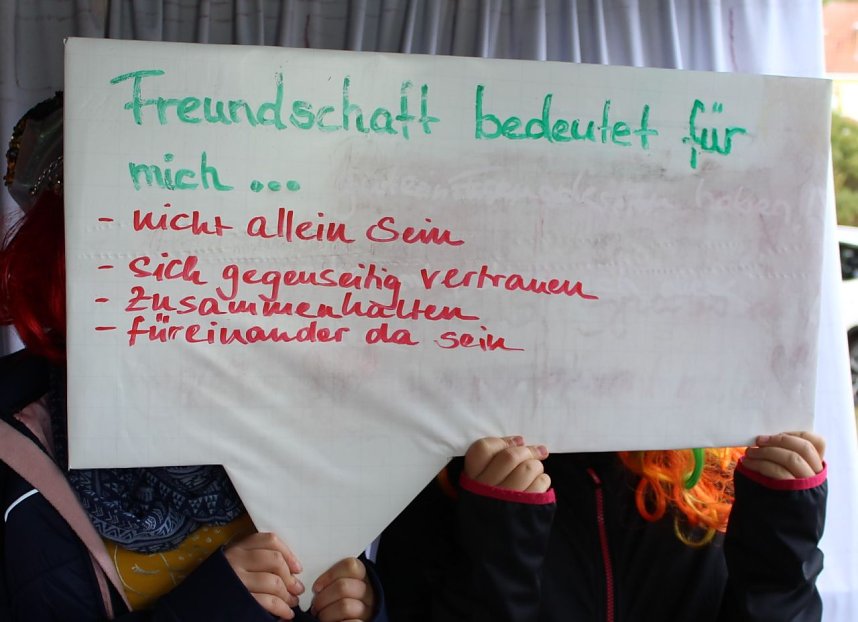 Freundschaft bedeutet für
mich ...
- nicht allein sein
- sich gegenseitig vertrauen
- zusammenhalten
- füreinander da sein